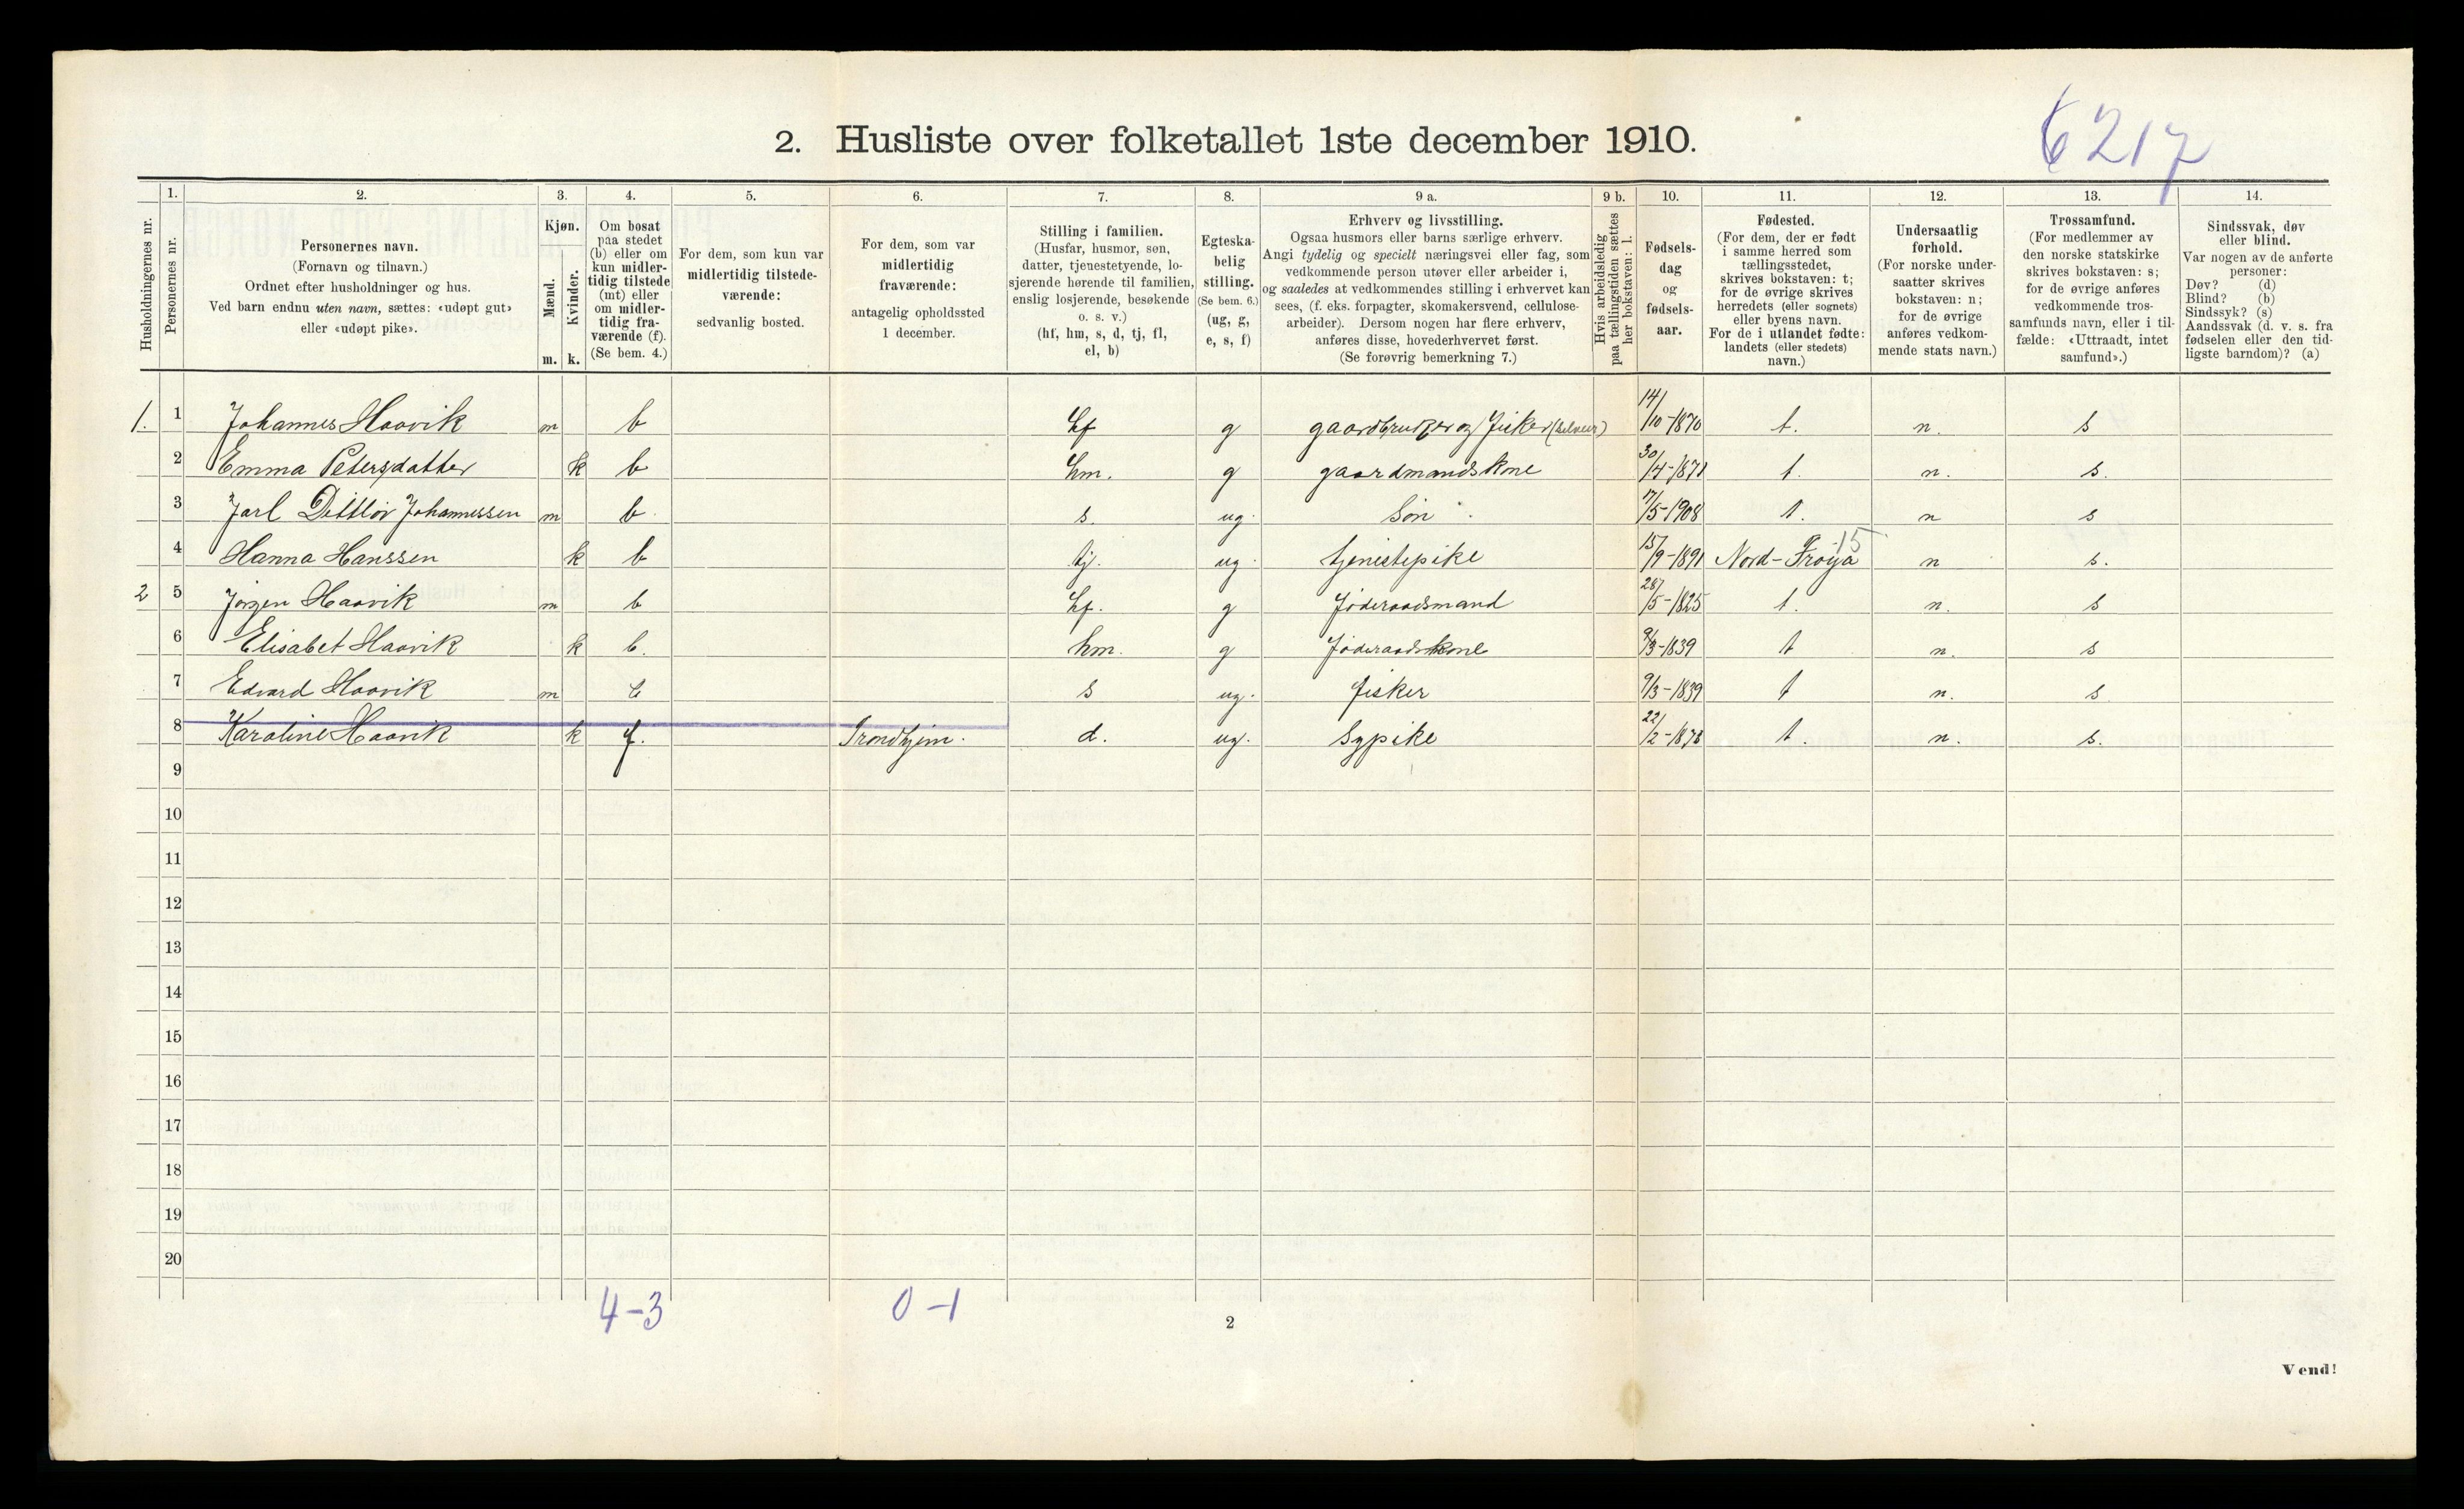 6217
2. Husliste over folketallet 1ste december 1910.
Husholdningernes nr.
1. Personernes nr.
2. Personernes navn.
(Fornavn og tilnavn.)
Ordnet efter husholdninger og hus.
Ved barn endnu uten navn, sættes: «udøpt gut»
eller «udøpt pike».
3. Kjøn.
Mænd. m.
Kvinder. k.
4. Om bosat
paa stedet
(b) eller om
kun midler-
tidig tilstede
(mt) eller
om midler-
tidig fra-
værende (f).
(Se bem. 4.)
5. For dem, som kun var
midlertidig tilstede-
værende:
sedvanlig bosted.
6. For dem, som var
midlertidig
fraværende:
antagelig opholdssted
1 december.
7. Stilling i familien.
(Husfar, husmor, søn,
datter, tjenestetyende, lo-
sjerende hørende til familien,
enslig losjerende, besøkende
o. s. v.)
(hf, hm, s, d, tj, fl,
el, b)
8. Egteska-
belig
stilling.
(Se bem. 6.)
(ug, g,
e, s, f)
9 a. Erhverv og livsstilling.
Ogsaa husmors eller barns særlige erhverv.
Angi tydelig og specielt næringsvei eller fag, som
vedkommende person utøver eller arbeider i,
og saaledes at vedkommendes stilling i erhvervet kan
sees, (f. eks. forpagter, skomakersvend, cellulose-
arbeider). Dersom nogen har flere erhverv,
anføres disse, hovederhvervet først.
(Se forøvrig bemerkning 7.)
9 b. Hvis arbeidsledig
paa tællingstiden sættes
her bokstaven: l.
10. Fødsels-
dag
og
fødsels-
aar.
11. Fødested.
(For dem, der er født
i samme herred som
tællingsstedet,
skrives bokstaven: t;
for de øvrige skrives
herredets (eller sognets)
eller byens navn.
For de i utlandet fødte:
landets (eller stedets)
navn.)
12. Undersaatlig
forhold.
(For norske under-
saatter skrives
bokstaven: n;
for de øvrige
anføres vedkom-
mende stats navn.)
13. Trossamfund.
(For medlemmer av
den norske statskirke
skrives bokstaven: s;
for de øvrige anføres
vedkommende tros-
samfunds navn, eller i til-
fælde: «Uttraadt, intet
samfund».)
14. Sindssvak, døv
eller blind.
Var nogen av de anførte
personer:
Døv? (d)
Blind? (b)
Sindssyk? (s)
Aandssvak (d. v. s. fra
fødselen eller den tid-
ligste barndom)? (a)
1. 1 Johannes Haavik m b hf g gaardbruger og Fisker (selveier) 14/10-1870 t. n. s
2 Emma Petersdatter k b hm. g gaardmandskone 30/4-1871 t. n. s.
3 Jarl Dittlov Johannessen m b. s. ug. Søn 7/5-1908 t. n s
4 Hanna Hanssen k b tj. ug. tjenestepike 15/9-1891 Nord-Frøya 15 n s.
2 5 Jørgen Haavik m b hf. g føderaadsmand 28/5-1825 t. n. s
6 Elisabet Haavik k b. hm. g føderaadskone 9/3-1839 t n. s
7 Edvard Haavik m b s ug. fisker 9/3-1839 t n. s
8 Karoline Haavik k f. Trondhjem. d. ug. Sypike 22/2-1878 t. n. s.
9
10
11
12
13
14
15
16
17
18
19
20
4-3 0-1
2
Vend!